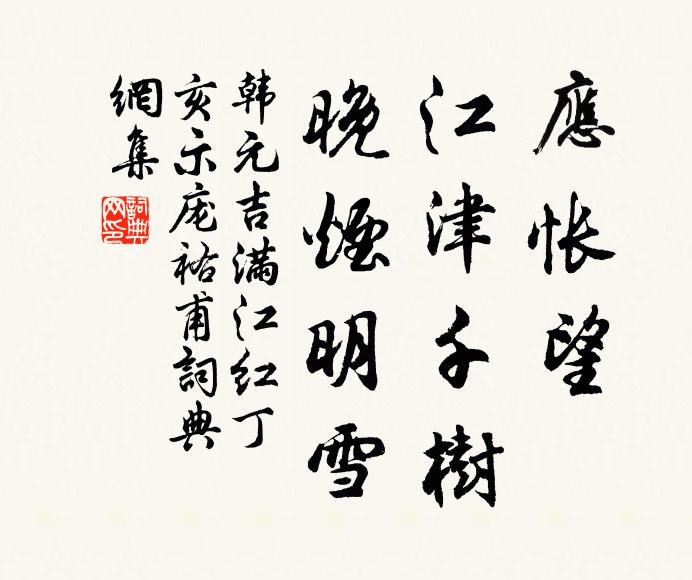 應悵望
江津千樹
晚煙明雪
韩元吉满江红丁
亥示庞祐甫詞典
網集
詞典
网印